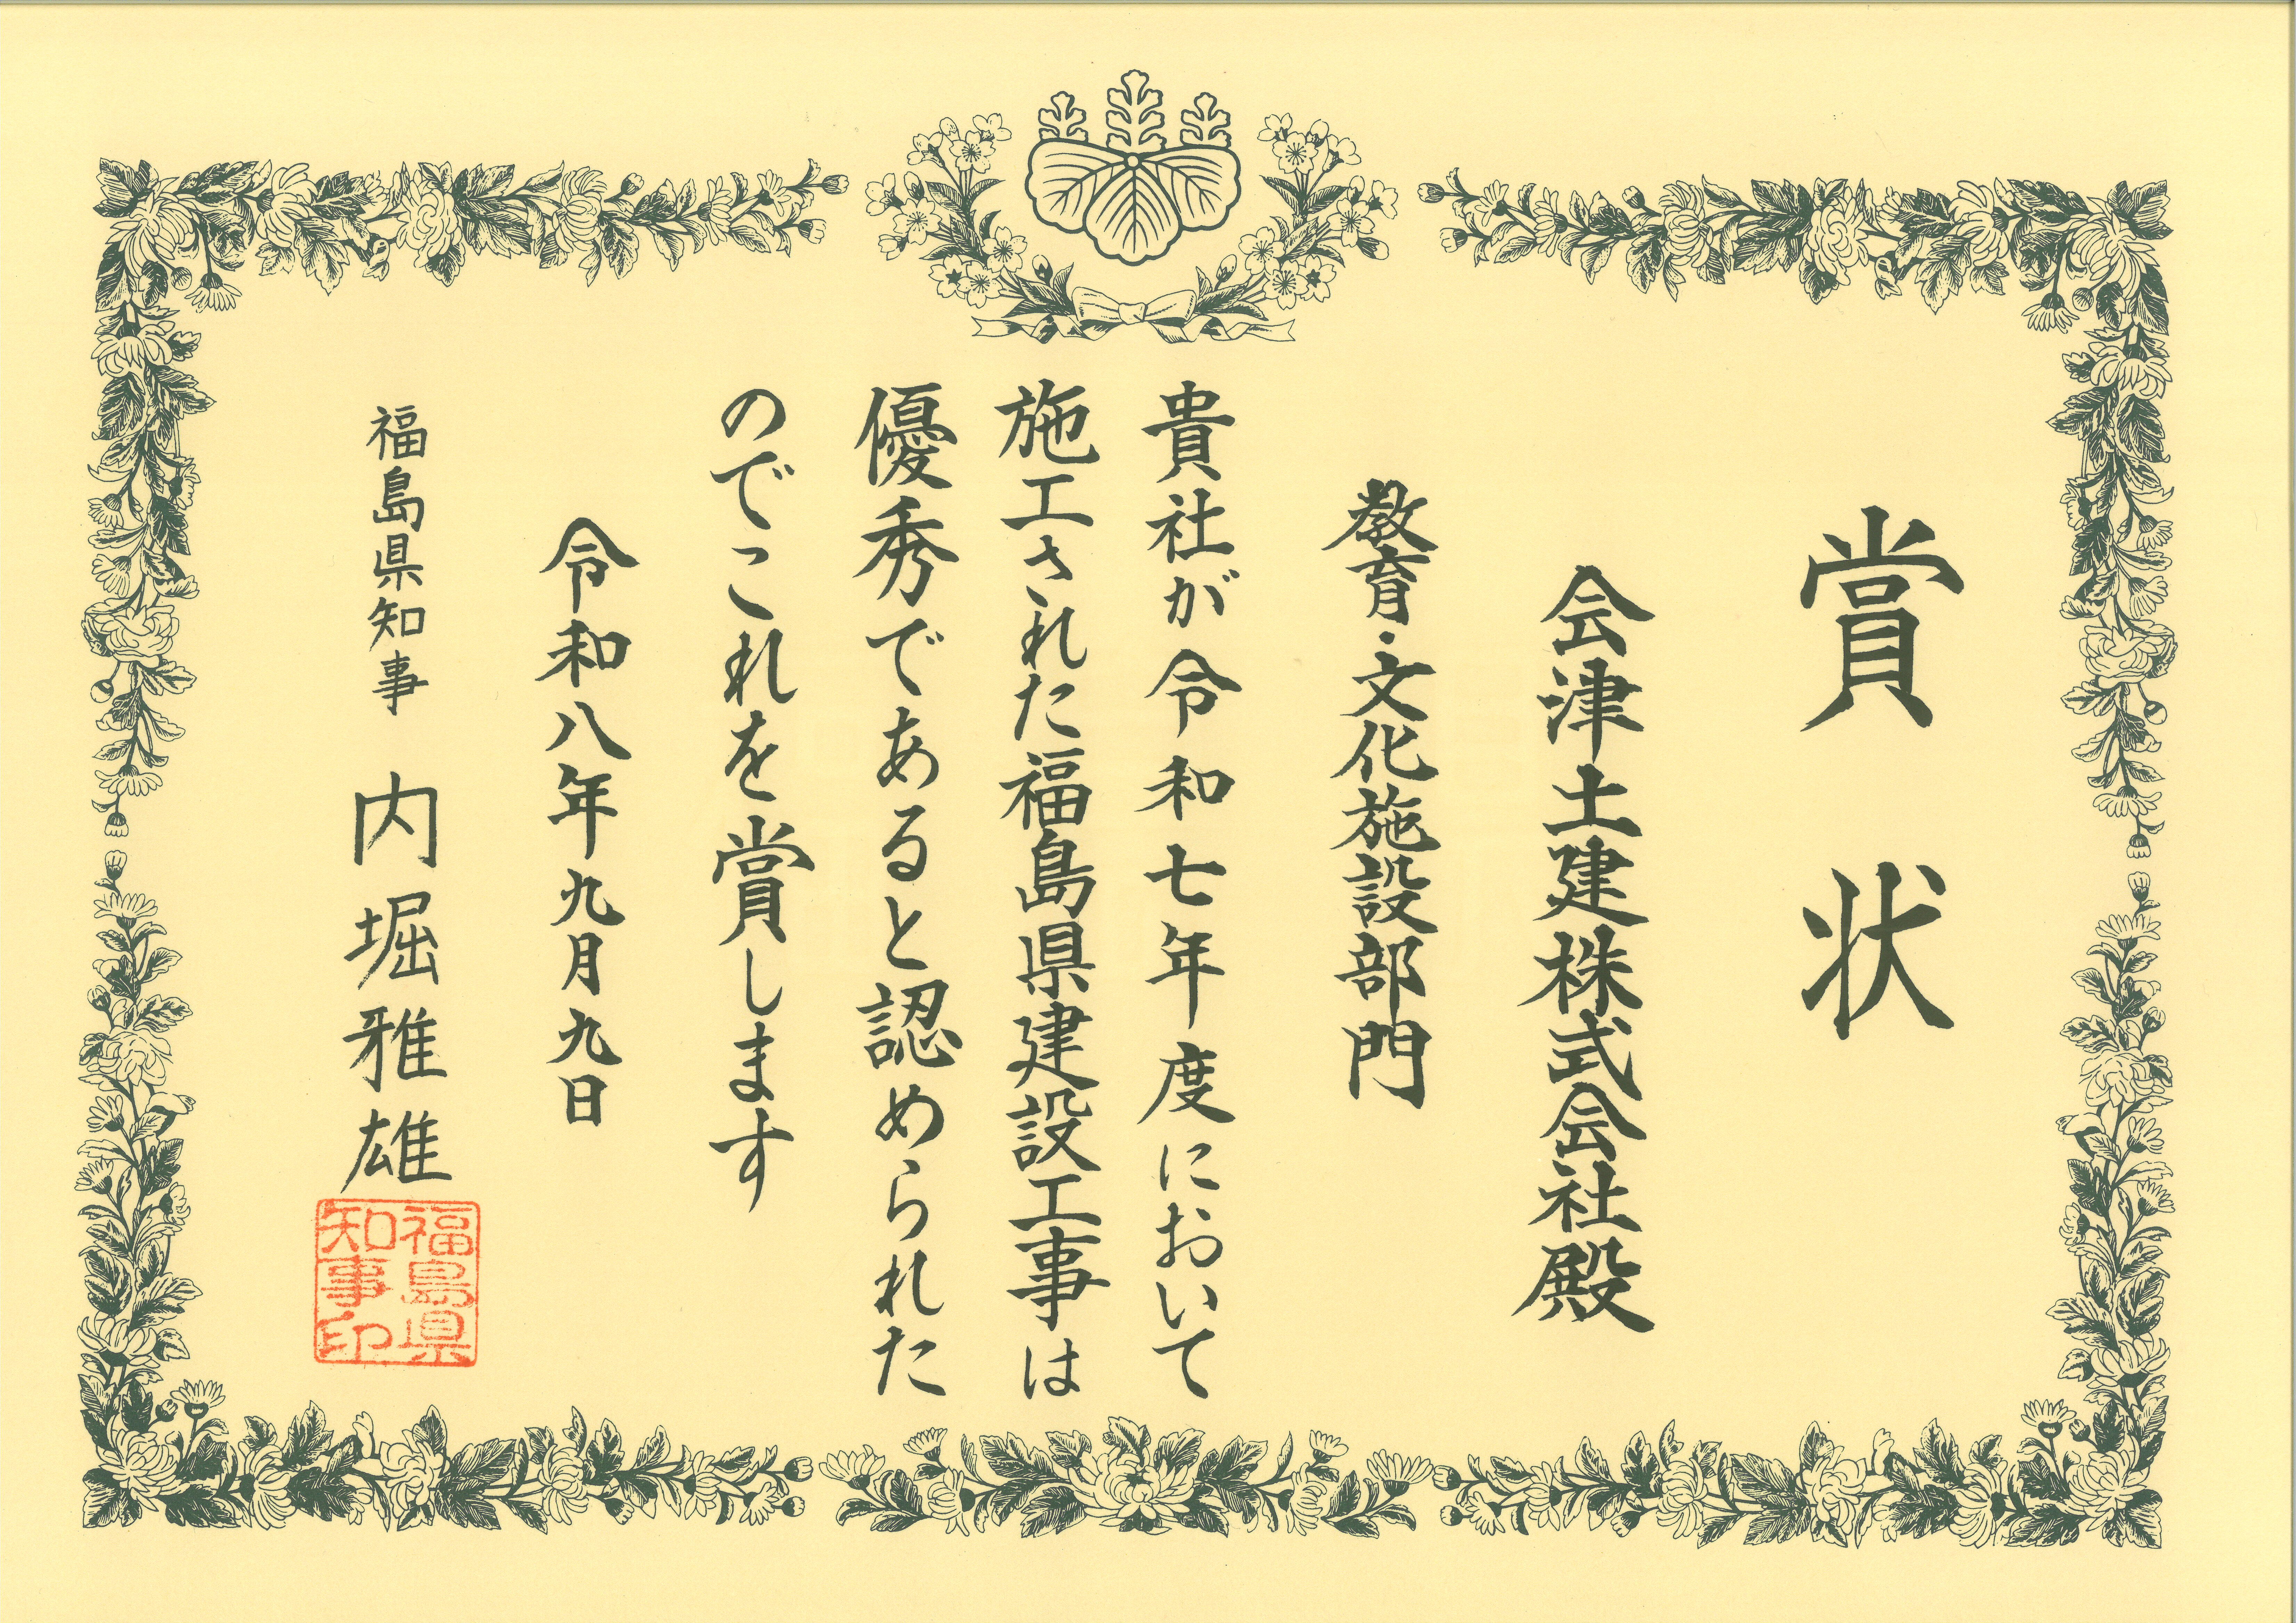 賞状
会津土建株式会社殿
教育・文化施設部門
貴社が令和七年度において
施工された福島県建設工事は
優秀であると認められた
のでこれを賞します
令和八年九月九日
福島県知事 内堀雅雄
福島県
知事印